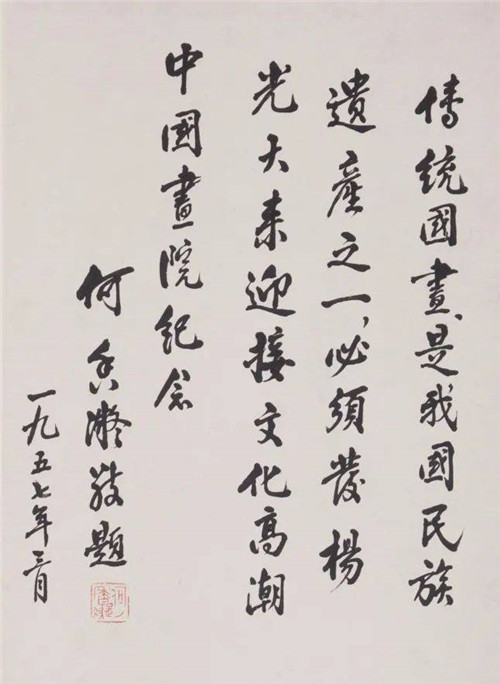 傳統國畫、是我國民族
遺產之一，必須發楊
光大来迎接文化高潮
中國畫院紀念
何香凝敬題
一九五七年三月